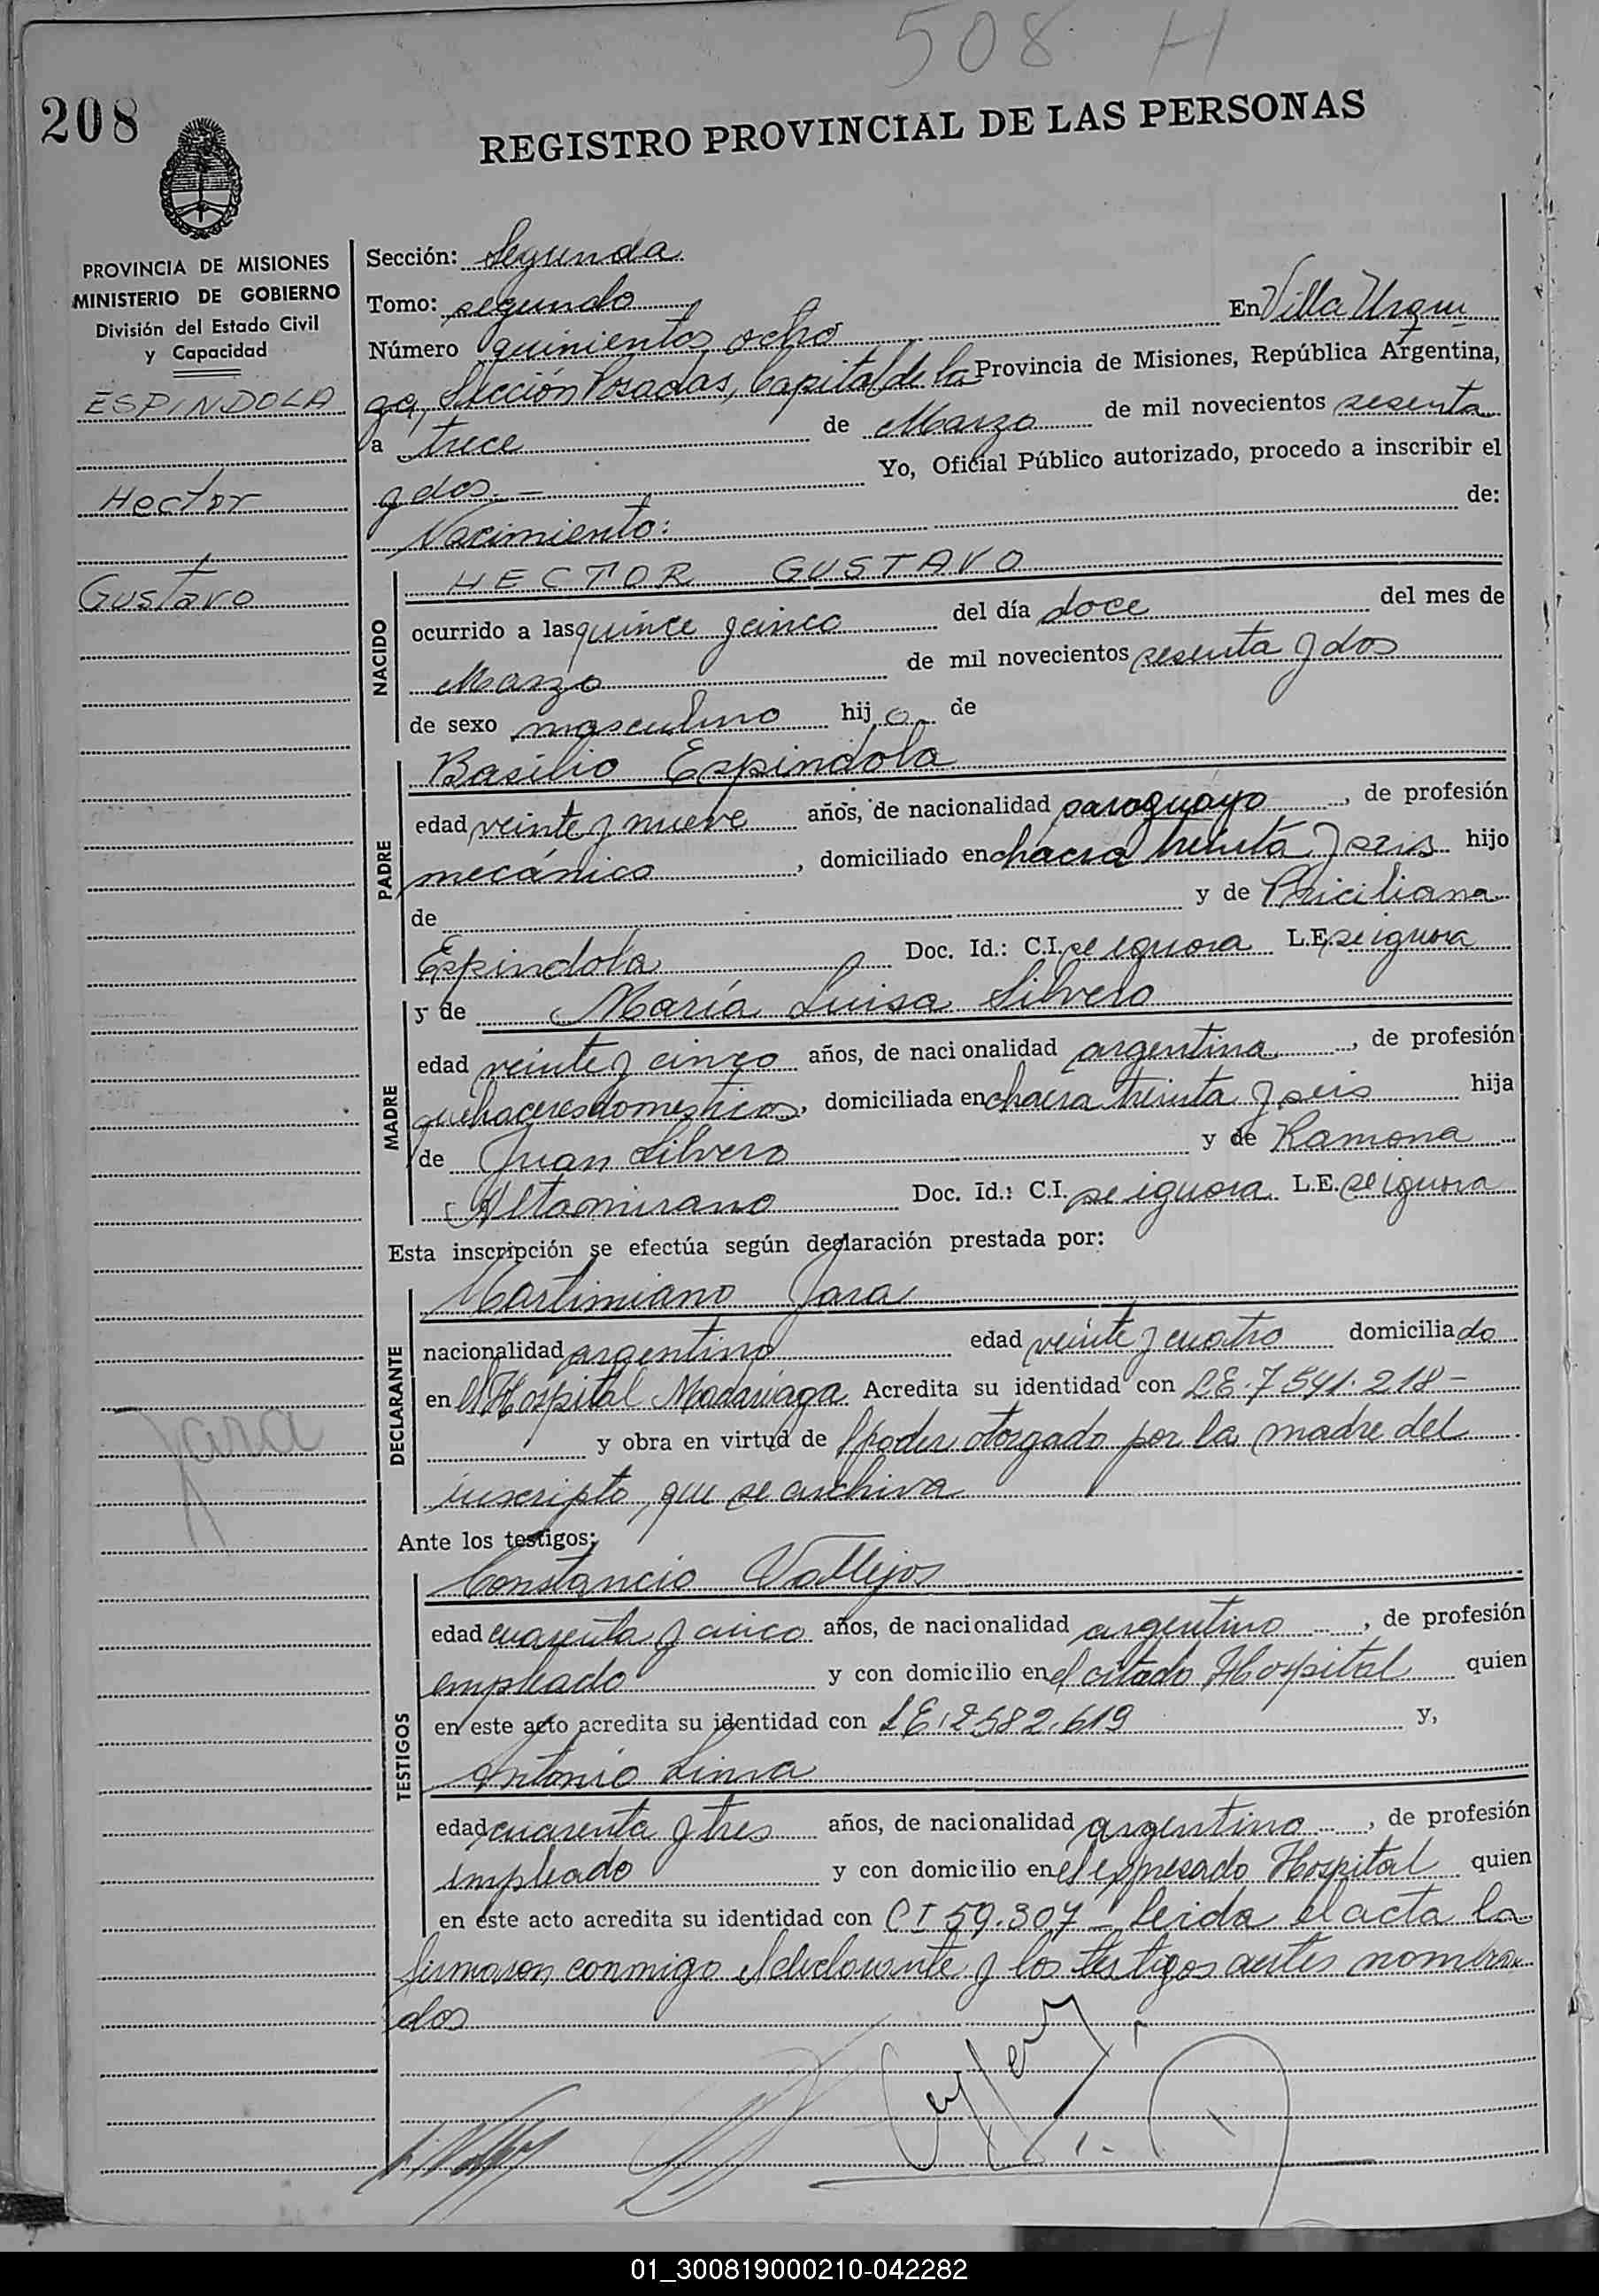 508 H
208
REGISTRO PROVINCIAL DE LAS PERSONAS
PROVINCIA DE MISIONES
MINISTERIO DE GOBIERNO
División del Estado Civil
y Capacidad
ESPINDOLA
Hector
Gustavo
Jara
Sección: Segunda
Tomo: segundo
Número quinientos ocho En Villa Urqui
za, Sección Posadas, Capital de la Provincia de Misiones, República Argentina,
a trece de Marzo de mil novecientos sesenta
y dos.- Yo, Oficial Público autorizado, procedo a inscribir el
Nacimiento: de:
NACIDO
HECTOR GUSTAVO
ocurrido a las quince y cinco del día doce del mes de
Marzo de mil novecientos sesenta y dos
de sexo masculino hijo de
PADRE
Basilio Espindola
edad veinte y nueve años, de nacionalidad paraguayo, de profesión
mecánico, domiciliado en chacra treinta y seis hijo
de y de Priciliana
Espindola Doc. Id.: C.I. se ignora L.E. se ignora
MADRE
y de María Luisa Silvero
edad veinte y cinco años, de nacionalidad argentina, de profesión
quehaceres domesticos, domiciliada en chacra treinta y seis hija
de Juan Silvero y de Ramona
Altamirano Doc. Id.: C.I. se ignora L.E. se ignora
Esta inscripción se efectúa según declaración prestada por:
DECLARANTE
Martimiano Jara
nacionalidad argentino edad veinte y cuatro domiciliado
en el Hospital Madariaga Acredita su identidad con LE.7541.218-
y obra en virtud de l poder otorgado por la madre del
inscripto, que se archiva
Ante los testigos:
TESTIGOS
Constancio Vallejos
edad cuarenta y cinco años, de nacionalidad argentino, de profesión
empleado y con domicilio en el citado Hospital quien
en este acto acredita su identidad con LE.2582.619 y,
Antonio Lima
edad cuarenta y tres años, de nacionalidad argentino, de profesión
empleado y con domicilio en el expresado Hospital quien
en este acto acredita su identidad con CI 59.307 - leida el acta la
firmaron conmigo el declarante y los testigos antes nombra
dos
01_300819000210-042282